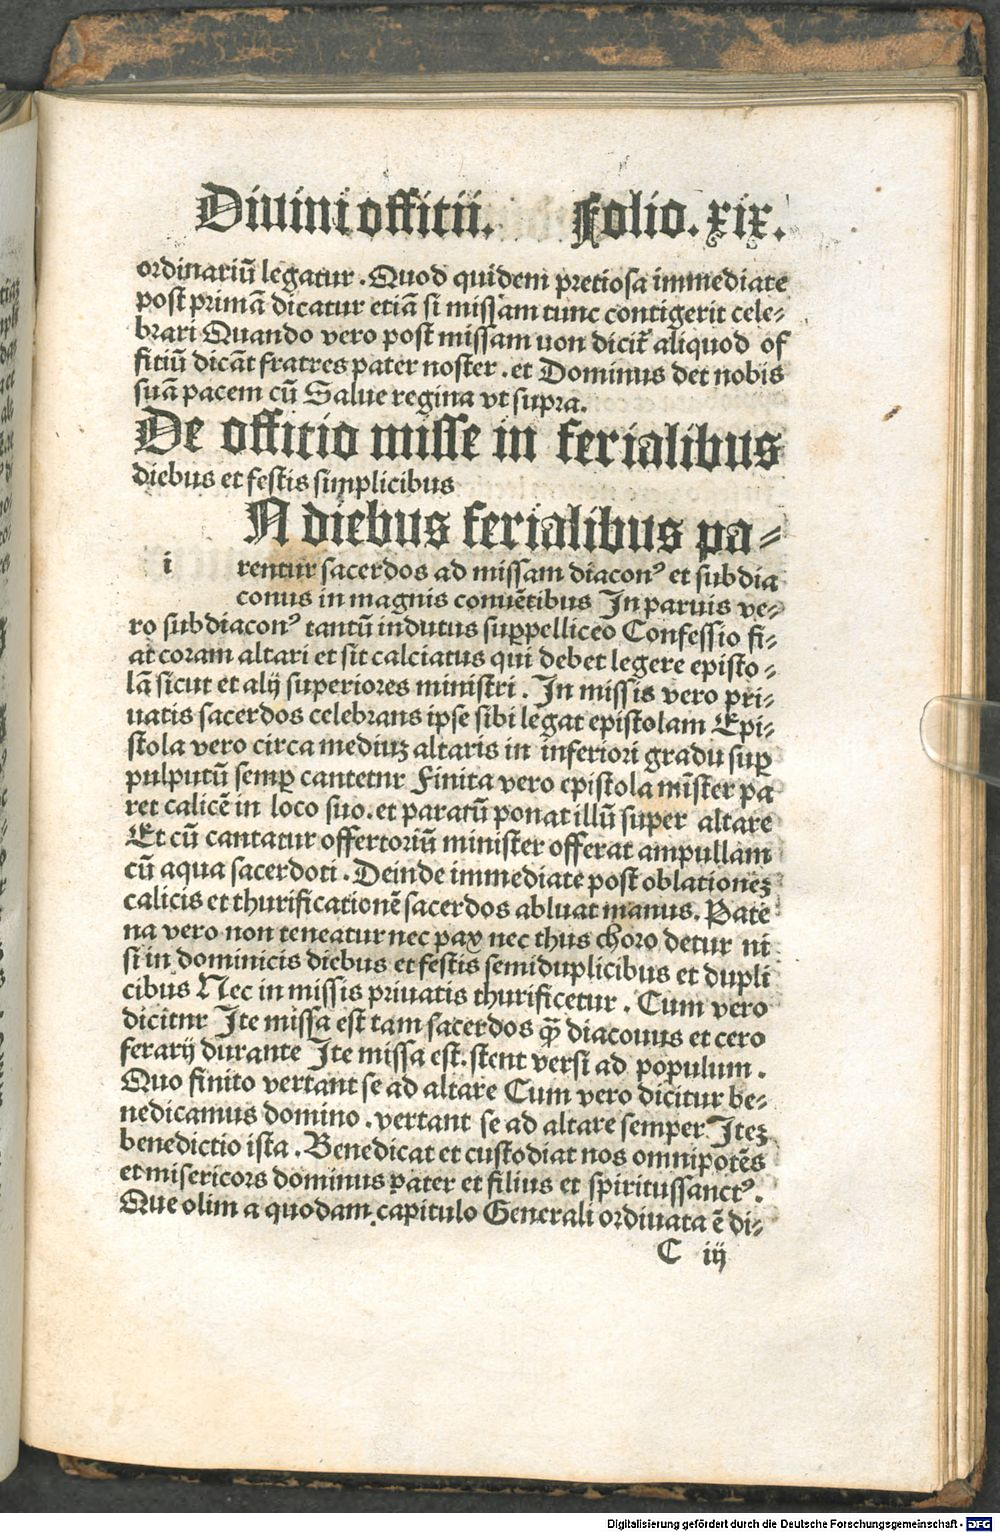 Diuini offitii. Folio. xix.
ordinariū legatur. Quod quidem pretiosa immediate
post primā dicatur etiā si missam tunc contigerit cele⸗
brari Quando vero post missam uon dicit᷑ aliquod of
fitiū dicāt fratres pater noster. et Dominus det nobis
suā pacem cū Salue regina vt supra.
De offitio misse in ferialibus
diebus et festis simplicibus
N diebus ferialibus pa⸗
i rentur sacerdos ad missam diaconꝰ et subdia
conus in magnis conuētibus In paruis ve⸗
ro subdiaconꝰ tantū indutus suppelliceo Confessio fi⸗
at coram altari et sit calciatus qui debet legere episto⸗
lā sicut et alij superiores ministri. In missis vero pri⸗
uatis sacerdos celebrans ipse sibi legat epistolam Epi⸗
stola vero circa mediuꝫ altaris in inferiori gradu suꝑ
pulputū semꝑ cantetnr Finita vero epistola mīster pa
ret calicē in loco suo. et paratū ponat illū super altare
Et cū cantatur offertoriū minister offerat ampullam
cū aqua sacerdoti. Deinde immediate post oblationeꝫ
calicis et thurificationē sacerdos abluat manus. Pate
na vero non teneatur nec pax nec thus choro detur ni
si in dominicis diebus et festis semiduplicibus et dupli
cibus Nec in missis priuatis thurificetur. Cum vero
dicitnr Ite missa est tam sacerdos ꝙ̄ diacouus et cero
ferarij durante Ite missa est. stent versi ad populum.
Quo finito vertant se ad altare Cum vero dicitur be⸗
nedicamus domino. vertant se ad altare semper Iteꝫ
benedictio ista. Benedicat et custodiat nos omnipotēs
et misericors dominus pater et filius et spiritussanctꝰ.
Que olim a quodam capitulo Generali ordiuata ē di⸗
C iij
Digitalisierung gefördert durch die Deutsche Forschungsgemeinschaft - DFG